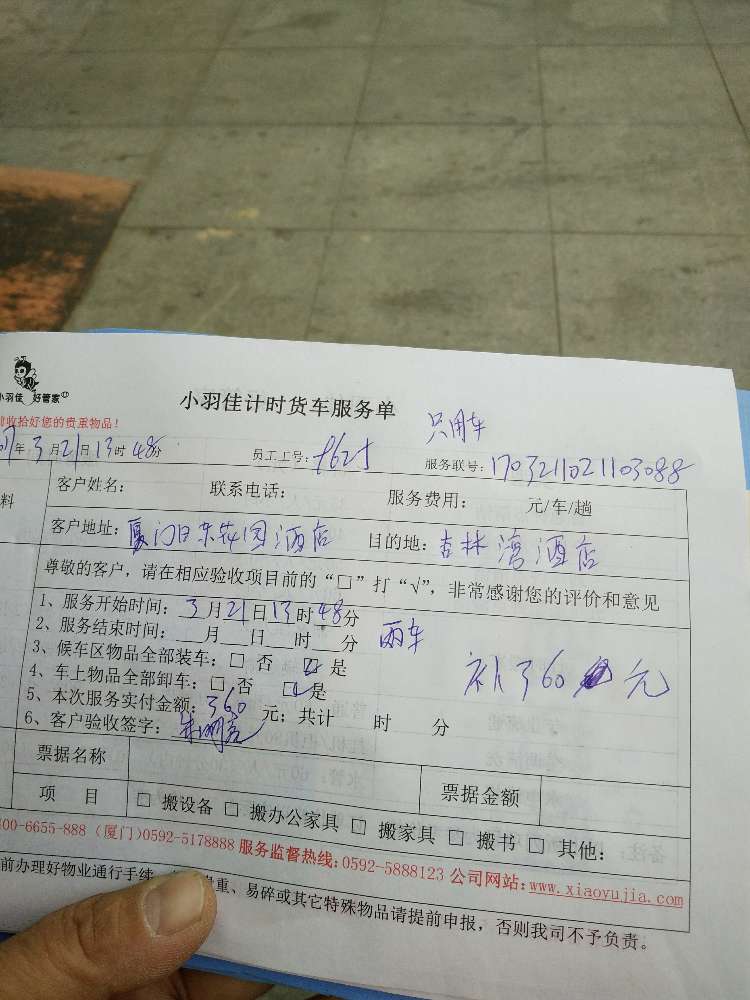 小羽佳 好管家
小羽佳计时货车服务单
收拾好您的贵重物品！
只用车
年3月21日13时48分 员工工号： 服务联号：1703211021103088
料
客户姓名： 联系电话： 服务费用： 元/车/趟
客户地址：厦门日东花园酒店 目的地：杏林湾酒店
尊敬的客户，请在相应验收项目前的“□”打“√”，非常感谢您的评价和意见
1、服务开始时间：3月21日13时48分
2、服务结束时间：__月__日__时__分 两车
3、候车区物品全部装车：□ 否 ☑ 是
4、车上物品全部卸车：□ 否 ☑ 是
补360元
5、本次服务实付金额：360元；共计 时 分
6、客户验收签字：
票据名称 票据金额
项 目 □ 搬设备 □ 搬办公家具 □ 搬家具 □ 搬书 □ 其他：
00-6655-888（厦门）0592-5178888 服务监督热线：0592-5888123 公司网站：www.xiaoyujia.com
前办理好物业通行手续 重、易碎或其它特殊物品请提前申报，否则我司不予负责。